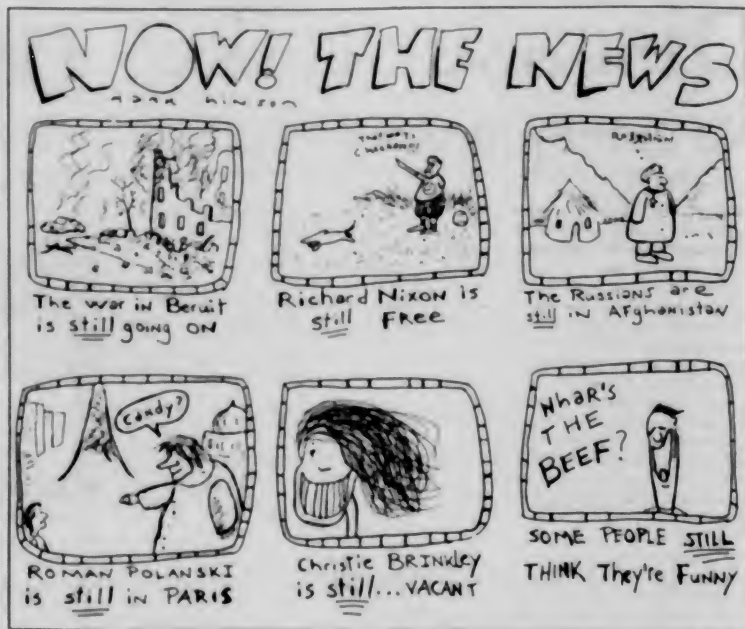 NOW! THE NEWS
mark hinson
The war in Beruit
is still going ON
Richard Nixon is
still FREE
The Russians are
still in AFghanistan
Candy?
ROMAN POLANSKI
is still in PARIS
Christie BRINKLEY
is still... VACANT
WhaR'S
THE
BEEF?
SOME PEOPLE STILL
THINK They're FUNNY